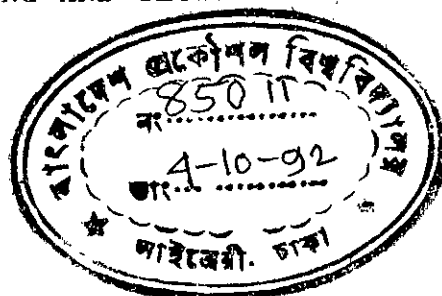 বাংলাদেশ প্রকৌশল বিশ্ববিদ্যালয়
নং 85011
তাং 4-10-92
লাইব্রেরী. ঢাকা